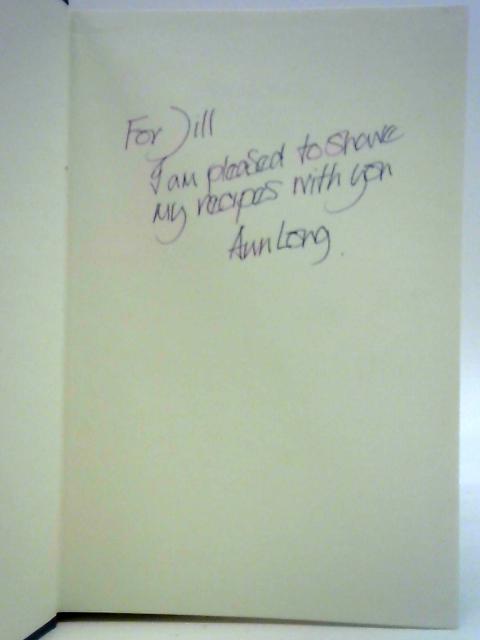 For Jill
I am pleased to share
my recipes with you
Ann Long.